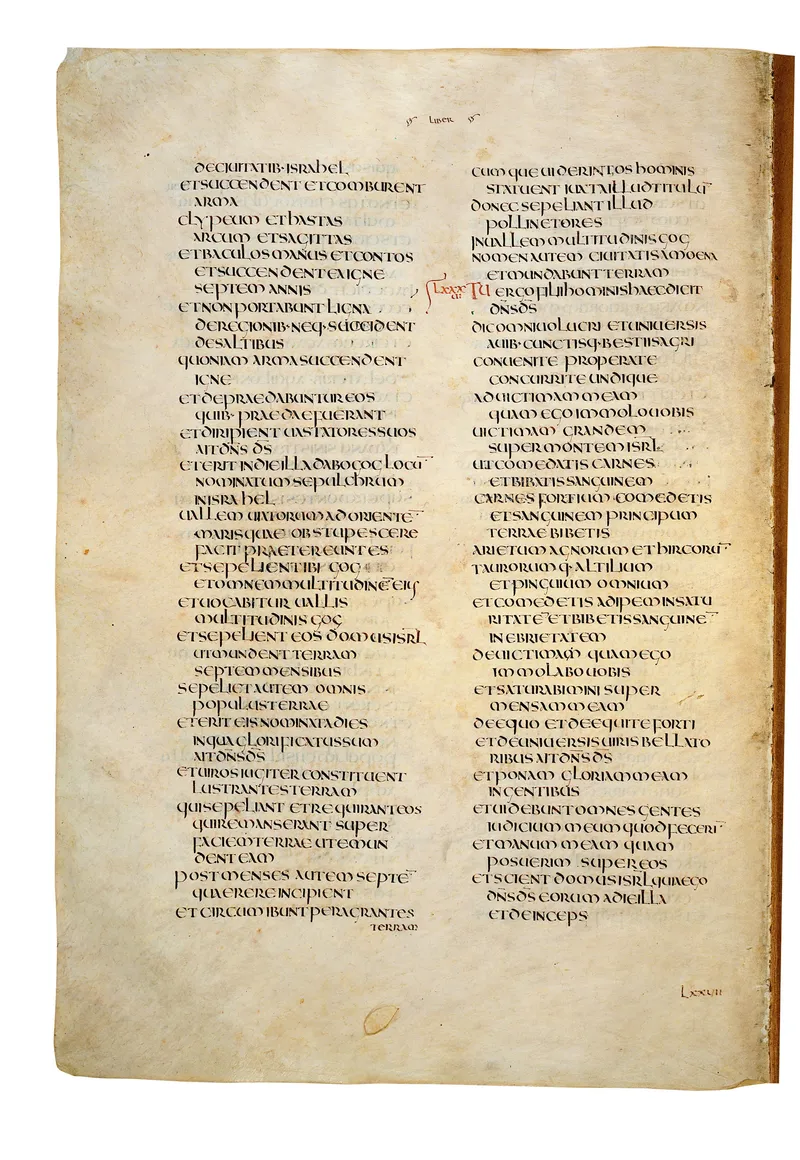 LIBER
DECIUITATIB· ISRAHEL
ETSUCCENDENT ETCOMBURENT
ARMA
CLYPEUM ETHASTAS
ARCUM ETSAGITTAS
ETBACULOS MANUS ETCONTOS
ETSUCCENDENTEA IGNE
SEPTEM ANNIS
ETNONPORTABUNT LIGNA
DEREGIONIB· NEQ· SUCCIDENT
DESALTIBUS
QUONIAM ARMASUCCENDENT
IGNE
ETDEPRAEDABUNTUR EOS
QUIB· PRAEDAEFUERANT
ETDIRIPIENT UASTATORESSUOS
AITDN̄S D̄S
ETERIT INDIEILLA DABOGOG LOCŪ
NOMINATUM SEPULCHRUM
INISRAHEL
UALLEM UIATORUM ADORIENTĒ
MARIS QUAE OBSTUPESCERE
FACIT PRAETEREUNTES
ETSEPELIENTIBI GOG
ETOMNEM MULTITUDINĒ EIUS
ETUOCABITUR UALLIS
MULTITUDINIS GOG
ETSEPELIENT EOS DOMUSISRL̄
UTMUNDENT TERRAM
SEPTEM MENSIBUS
SEPELIET AUTEM OMNIS
POPULUSTERRAE
ETERIT EIS NOMINATADIES
INQUA GLORIFICATUSSUM
AITDN̄SD̄S
ETUIROS IUGITER CONSTITUENT
LUSTRANTES TERRAM
QUISEPELIANT ETREQUIRANT EOS
QUIREMANSERANT SUPER
FACIEM TERRAE UTEMUN
DENT EAM
POST MENSES AUTEM SEPTĒ
QUAERERE INCIPIENT
ETCIRCUMIBUNT PERAGRANTES
TERRAM
CUMQUE UIDERINT OS HOMINIS
STATUENT IUXTAILLUD TITULŪ
DONEC SEPELIANT ILLUD
POLLINCTORES
INUALLEM MULTITUDINIS GOG
NOMENAUTEM CIUITATIS AMOENA
ETMUNDABUNT TERRAM
LXXX TU ERGO FILIHOMINIS HAECDICIT
DN̄SD̄S
DICOMNIUOLUCRI ETUNIUERSIS
AUIB· CUNCTISQ· BESTIISAGRI
CONUENITE PROPERATE
CONCURRITE UNDIQUE
ADUICTIMAM MEAM
QUAM EGO IMMOLO UOBIS
UICTIMAM GRANDEM
SUPERMONTEM ISRL̄
UTCOMEDATIS CARNES
ETBIBATIS SANGUINEM
CARNES FORTIUM COMEDETIS
ETSANGUINEM PRINCIPUM
TERRAE BIBETIS
ARIETUM AGNORUM ETHIRCORŪ
TAURORUMQ· ALTILIUM
ETPINGUIUM OMNIUM
ETCOMEDETIS ADIPEM INSATU
RITATĒ ETBIBETIS SANGUINĒ
INEBRIETATEM
DEUICTIMA QUAM EGO
IMMOLABO UOBIS
ETSATURABIMINI SUPER
MENSAM MEAM
DEEQUO ETDEEQUITE FORTI
ETDEUNIUERSIS UIRIS BELLATO
RIBUS AITDN̄S D̄S
ETPONAM GLORIAM MEAM
INGENTIBUS
ETUIDEBUNT OMNES GENTES
IUDICIUM MEUM QUOD FECERĪ
ETMANUM MEAM QUAM
POSUERIM SUPER EOS
ETSCIENT DOMUSISRL̄ QUIAEGO
DN̄SD̄S EORUM ADIEILLA
ETDEINCEPS
LXXVII